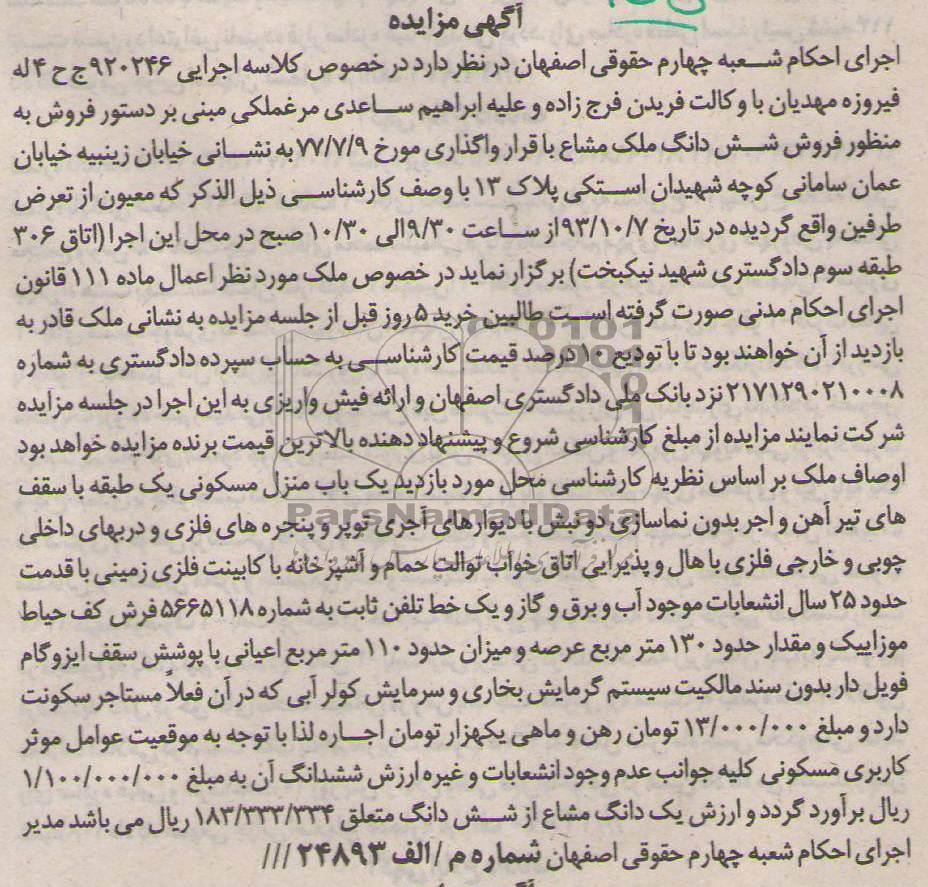 آگهی مزایده
اجرای احکام شعبه چهارم حقوقی اصفهان در نظر دارد در خصوص کلاسه اجرایی ۹۲۰۲۴۶ ج ح ۴ له
فیروزه مهدیان با وکالت فریدن فرج زاده و علیه ابراهیم ساعدی مرغملکی مبنی بر دستور فروش به
منظور فروش شش دانگ ملک مشاع با قرار واگذاری مورخ ۷۷/۷/۹ به نشانی خیابان زینبیه خیابان
عمان سامانی کوچه شهیدان استکی پلاک ۱۳ با وصف کارشناسی ذیل الذکر که معیون از تعرض
طرفین واقع گردیده در تاریخ ۹۳/۱۰/۷ از ساعت ۹/۳۰ الی ۱۰/۳۰ صبح در محل این اجرا (اتاق ۳۰۶
طبقه سوم دادگستری شهید نیکبخت) برگزار نماید در خصوص ملک مورد نظر اعمال ماده ۱۱۱ قانون
اجرای احکام مدنی صورت گرفته است طالبین خرید ۵ روز قبل از جلسه مزایده به نشانی ملک قادر به
بازدید از آن خواهند بود تا با تودیع ۱۰ درصد قیمت کارشناسی به حساب سپرده دادگستری به شماره
۲۱۷۱۲۹۰۲۱۰۰۰۸ نزد بانک ملی دادگستری اصفهان و ارائه فیش واریزی به این اجرا در جلسه مزایده
شرکت نمایند مزایده از مبلغ کارشناسی شروع و پیشنهاد دهنده بالاترین قیمت برنده مزایده خواهد بود
اوصاف ملک بر اساس نظریه کارشناسی محل مورد بازدید یک باب منزل مسکونی یک طبقه با سقف
های تیر آهن و اجر بدون نماسازی دو نبش با دیوارهای آجری توپر و پنجره های فلزی و دربهای داخلی
چوبی و خارجی فلزی با هال و پذیرایی اتاق خواب توالت حمام و آشپزخانه با کابینت فلزی زمینی با قدمت
حدود ۲۵ سال انشعابات موجود آب و برق و گاز و یک خط تلفن ثابت به شماره ۵۶۶۵۱۱۸ فرش کف حیاط
موزاییک و مقدار حدود ۱۳۰ متر مربع عرصه و میزان حدود ۱۱۰ متر مربع اعیانی با پوشش سقف ایزوگام
فویل دار بدون سند مالکیت سیستم گرمایش بخاری و سرمایش کولر آبی که در آن فعلاً مستاجر سکونت
دارد و مبلغ ۱۳/۰۰۰/۰۰۰ تومان رهن و ماهی یکهزار تومان اجاره لذا با توجه به موقعیت عوامل موثر
کاربری مسکونی کلیه جوانب عدم وجود انشعابات و غیره ارزش ششدانگ آن به مبلغ ۱/۱۰۰/۰۰۰/۰۰۰
ریال برآورد گردد و ارزش یک دانگ مشاع از شش دانگ متعلق ۱۸۳/۳۳۳/۳۳۴ ریال می باشد مدیر
اجرای احکام شعبه چهارم حقوقی اصفهان شماره م / الف ۲۴۸۹۳ ///
ParsNamadData